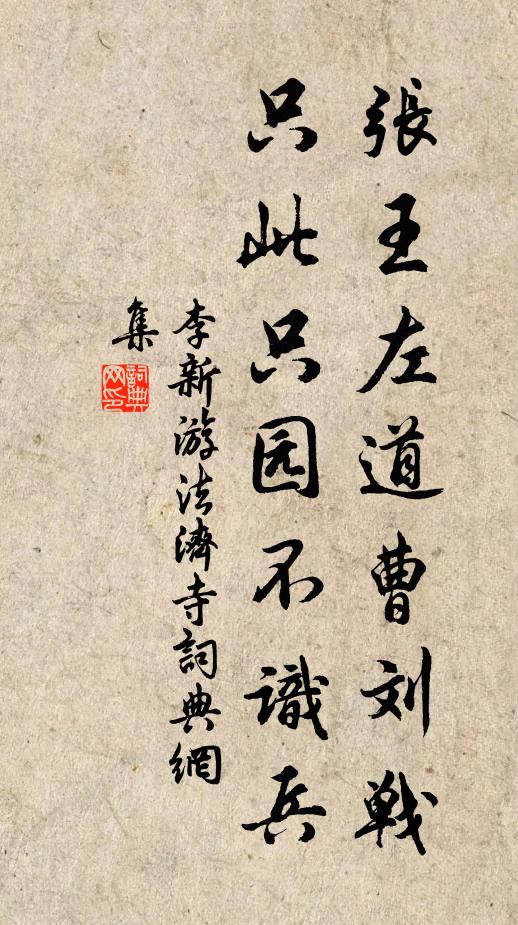 張王左道曹刘戦
只此只园不識兵
李新游法濟寺詞典網
集
詞典
网印